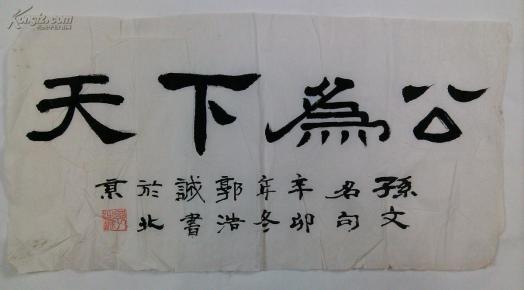 天下為公
孫文
名句
辛卯
年冬
郭浩
誠書
於北
京